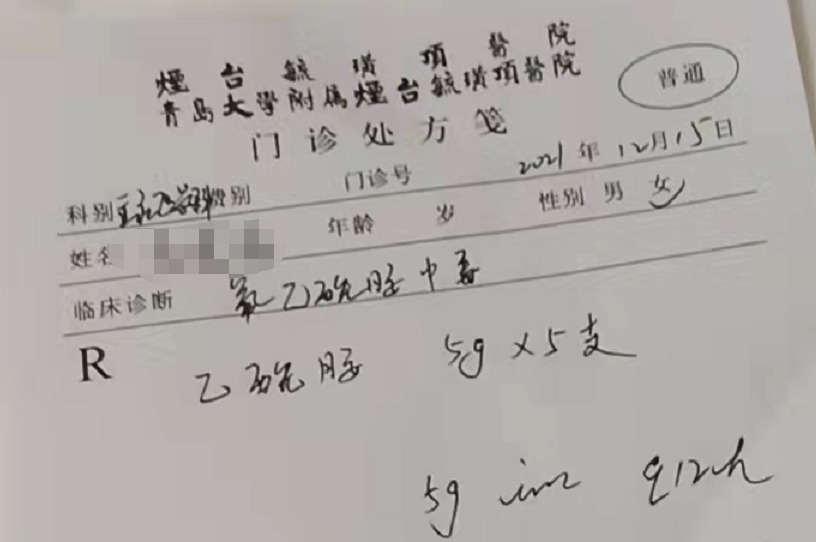 煙台毓璜頂醫院
青島大學附屬煙台毓璜頂醫院
普通
门诊处方笺
2021年12月15日
科别 费别 门诊号
姓名 年龄 岁 性别 男 女
临床诊断 氟乙酰胺中毒
R
乙酰胺 5g×5支
5g im q12h